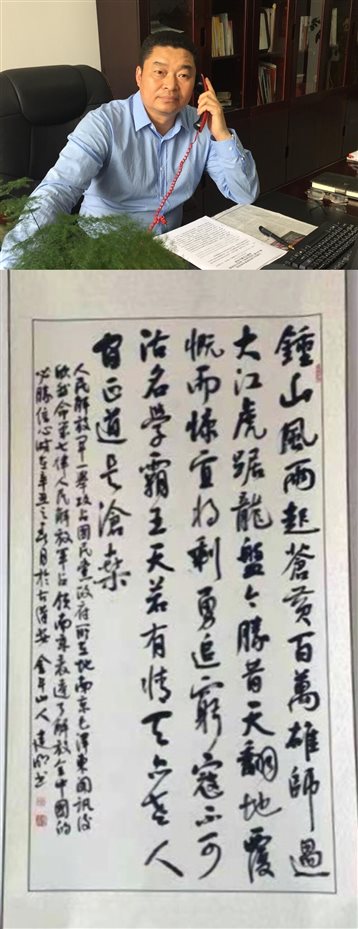 鍾山風雨起蒼黃百萬雄師過
大江虎踞龍盤今勝昔天翻地覆
慨而慷宜將剩勇追窮寇不可
沽名學霸王天若有情天亦老人
間正道是滄桑
人民解放軍一舉攻占國民黨政府所在地南京毛澤東聞訊後
欣然命筆七律人民解放軍占領南京表達了解放全中國的
必勝信心時在辛丑之月於古金牛山人建書